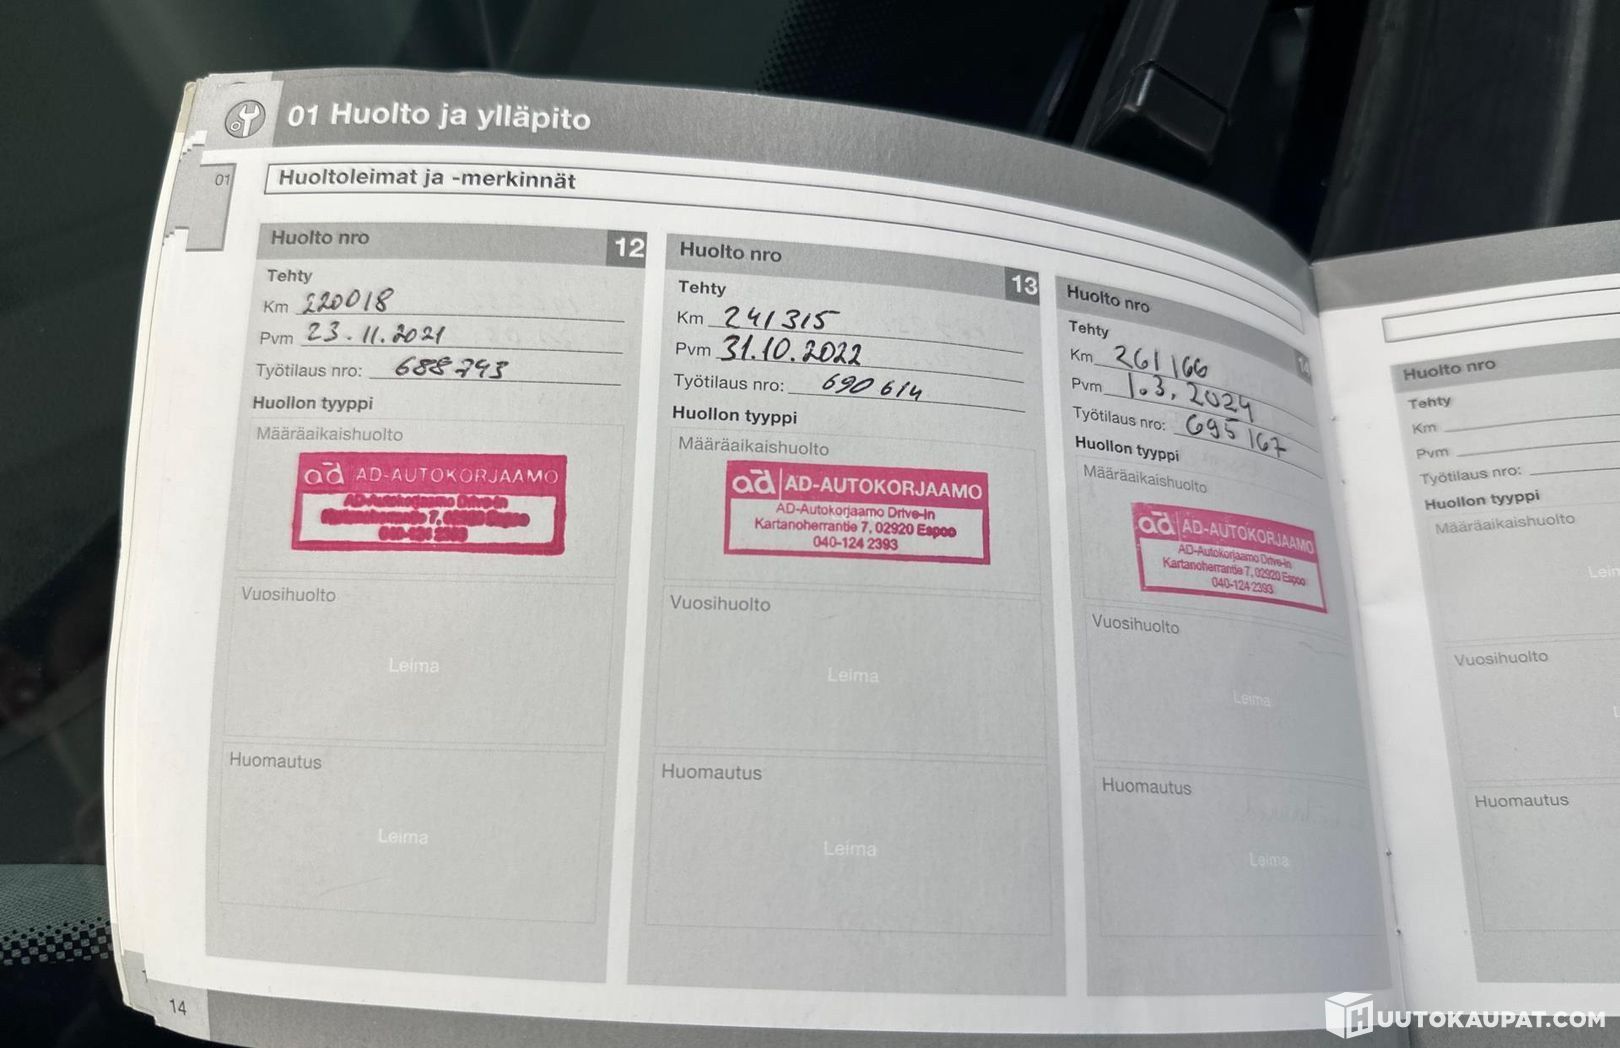 01 Huolto ja ylläpito
01
Huoltoleimat ja -merkinnät
Huolto nro 12
Tehty
Km 220018
Pvm 23.11.2021
Työtilaus nro: 688743
Huollon tyyppi
Määräaikaishuolto
ad AD-AUTOKORJAAMO
AD-Autokorjaamo Drive-In
7, 02920 Espoo
040-124 2393
Vuosihuolto
Leima
Huomautus
Leima
Huolto nro 13
Tehty
Km 241315
Pvm 31.10.2022
Työtilaus nro: 690614
Huollon tyyppi
Määräaikaishuolto
ad AD-AUTOKORJAAMO
AD-Autokorjaamo Drive-In
Kartanoherrantie 7, 02920 Espoo
040-124 2393
Vuosihuolto
Leima
Huomautus
Leima
Huolto nro 14
Tehty
Km 261166
Pvm 1.3.2024
Työtilaus nro: 695167
Huollon tyyppi
Määräaikaishuolto
ad AD-AUTOKORJAAMO
AD-Autokorjaamo Drive-In
Kartanoherrantie 7, 02920 Espoo
040-124 2393
Vuosihuolto
Leima
Huomautus
Leima
Huolto nro
Tehty
Km
Pvm
Työtilaus nro:
Huollon tyyppi
Määräaikaishuolto
Vuosihuolto
Huomautus
14
HUUTOKAUPAT.COM